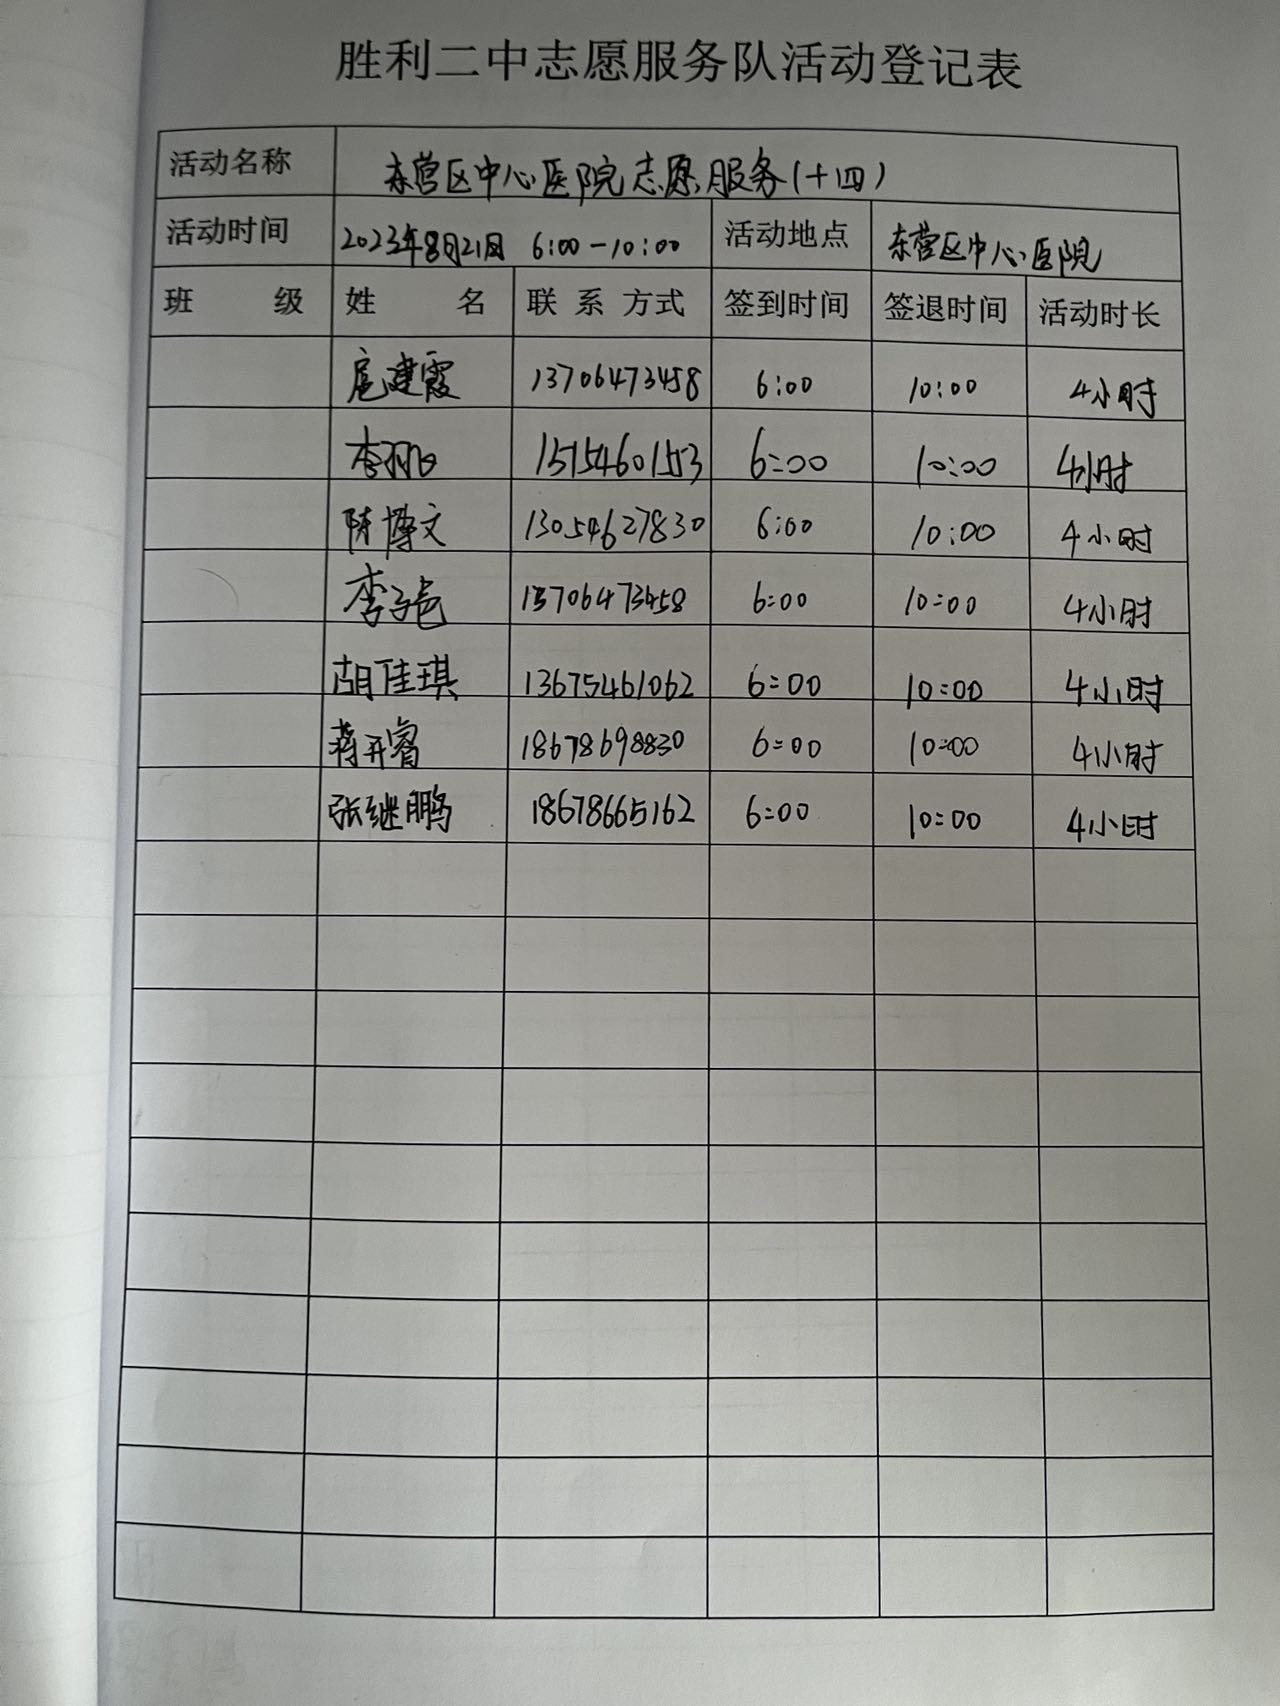 胜利二中志愿服务队活动登记表
活动名称 东营区中心医院志愿服务(十四)
活动时间 2023年8月21日 6:00-10:00 活动地点 东营区中心医院
班 级 姓 名 联系方式 签到时间 签退时间 活动时长
扈建霞 13706473458 6:00 10:00 4小时
李 15154601553 6:00 10:00 4小时
陈博文 13054627830 6:00 10:00 4小时
李子 13706473458 6:00 10:00 4小时
胡佳琪 13675461062 6:00 10:00 4小时
蒋开睿 18678698830 6:00 10:00 4小时
张继鹏 18678665162 6:00 10:00 4小时